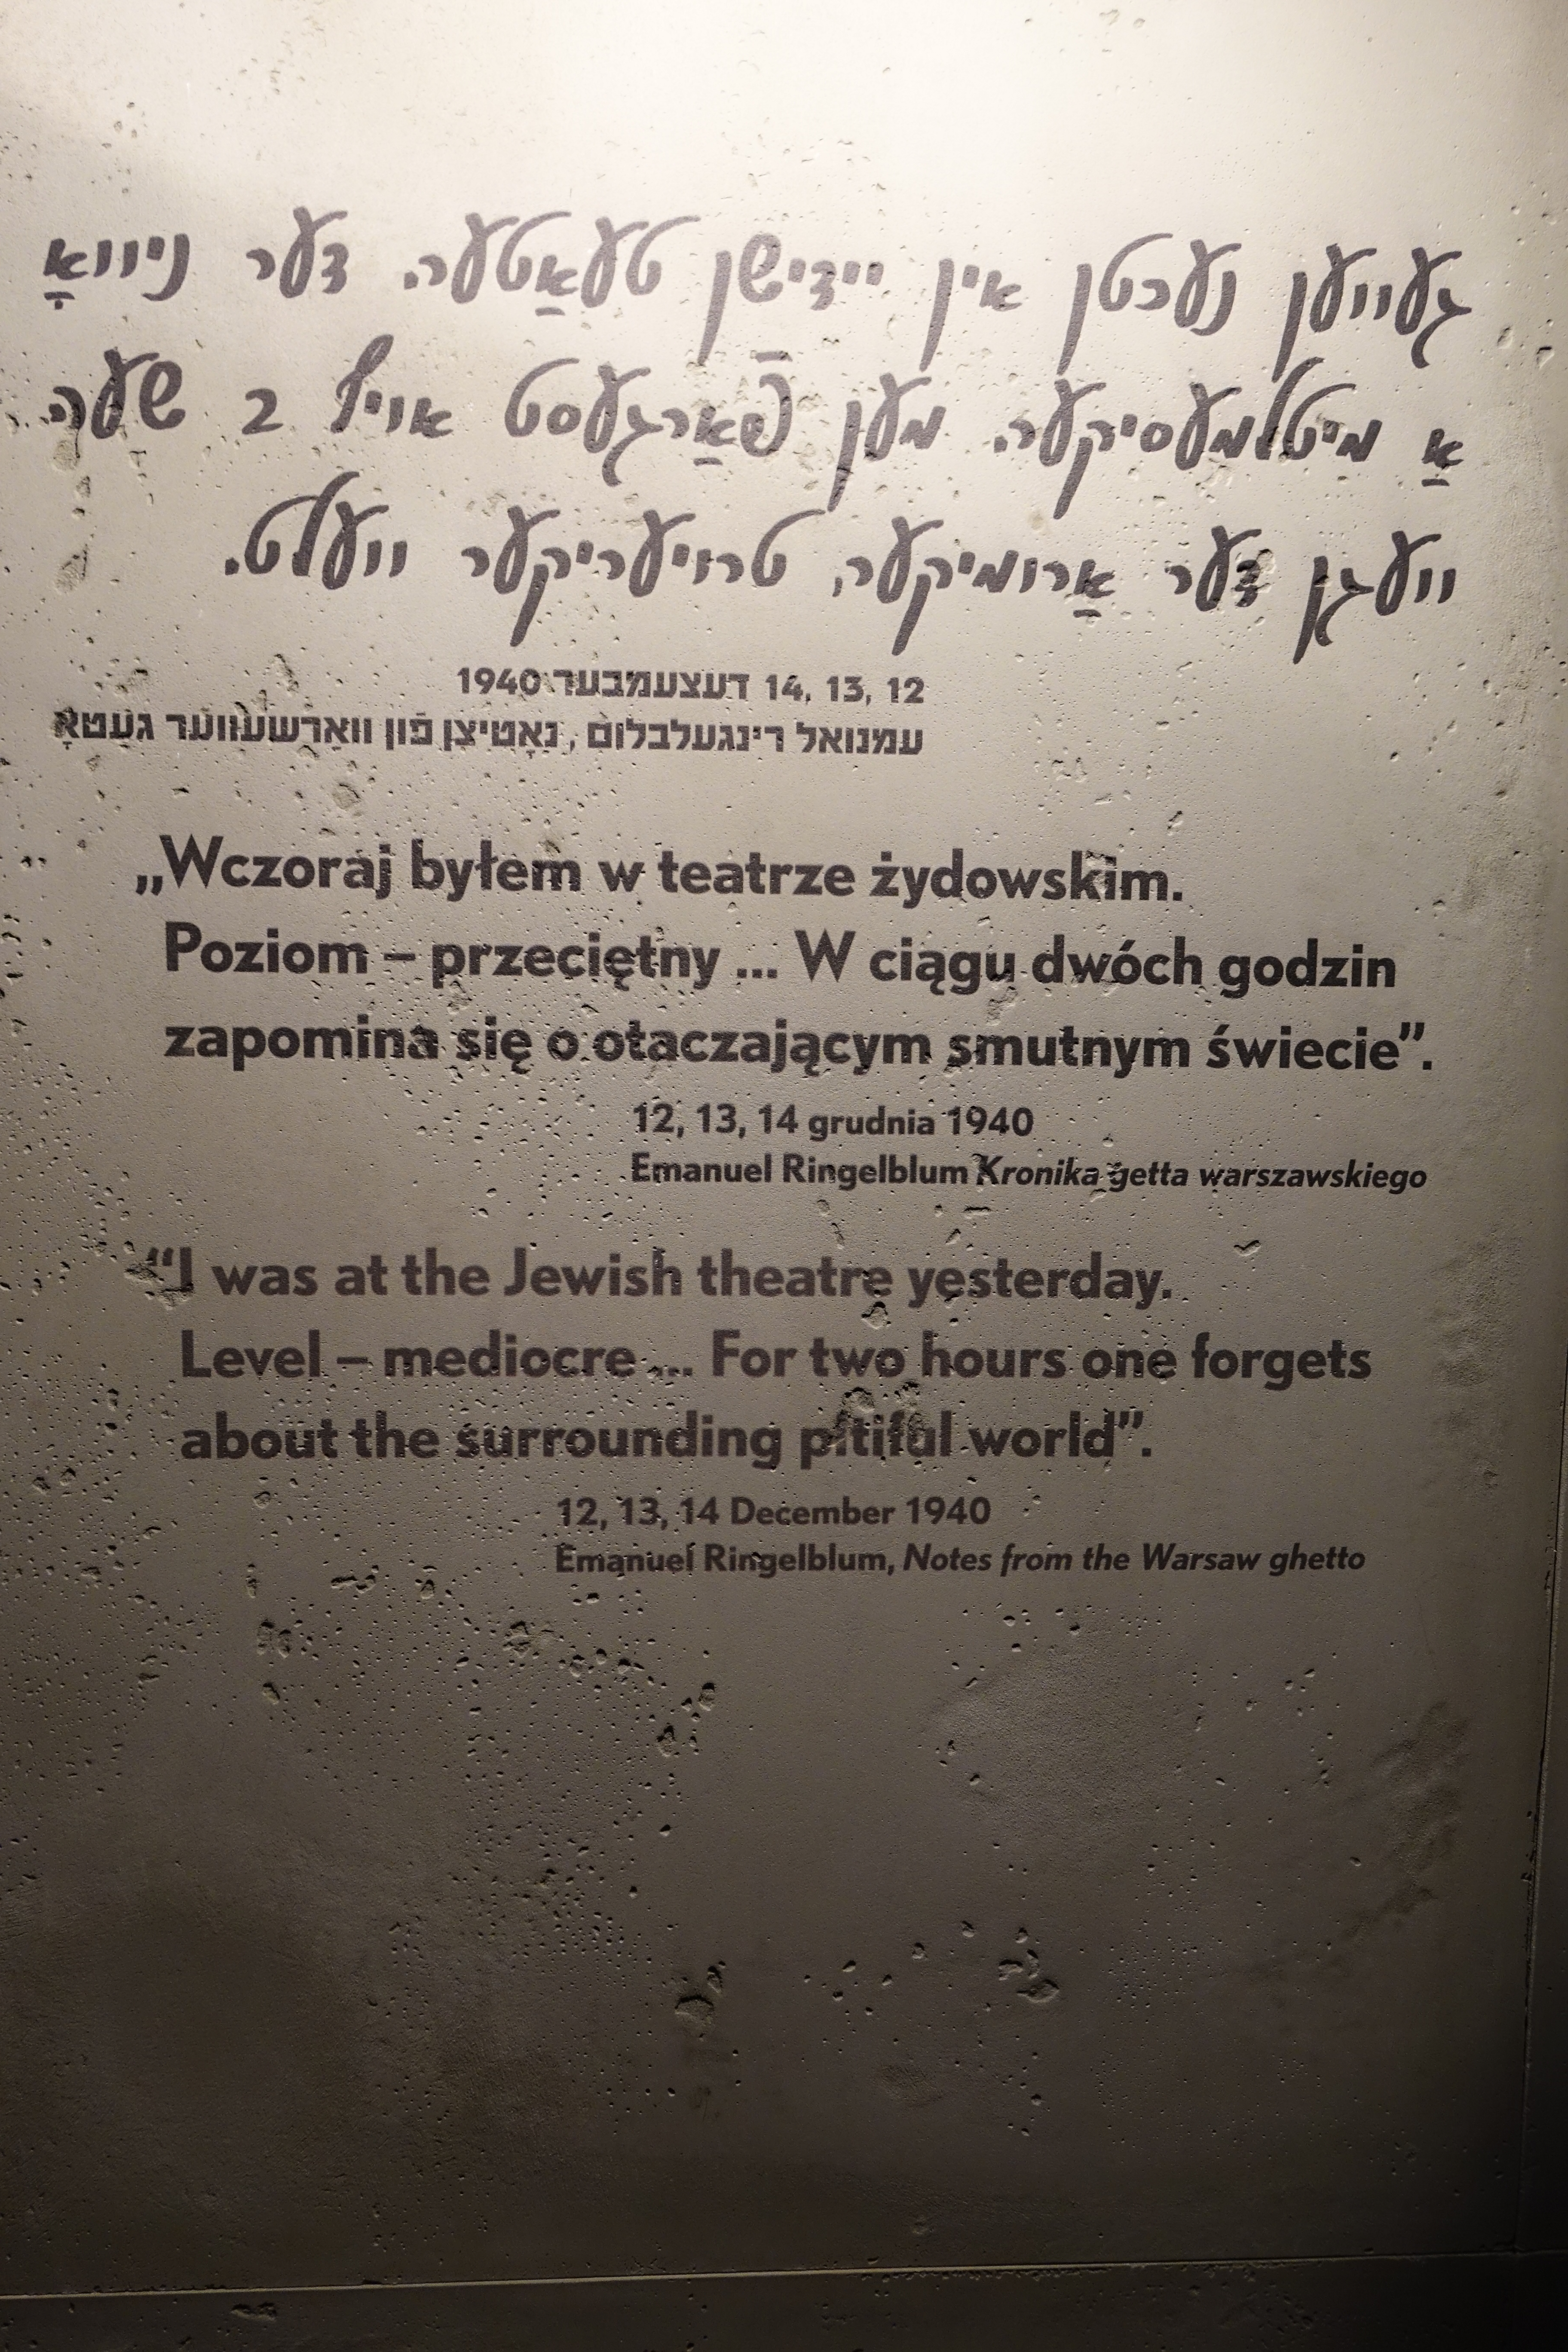 געווען נעכטן אין ייִדישן טעאַטער. דער ניוואָ
אַ מיטלמעסיקער. מען פֿאַרגעסט אויף 2 שעה
וועגן דער אַרומיקער, טרויעריקער וועלט.
12, 13, 14 דעצעמבער 1940
עמנואל רינגעלבלום, נאָטיצן פֿון וואַרשעווער געטאָ
„Wczoraj byłem w teatrze żydowskim.
Poziom – przeciętny ... W ciągu dwóch godzin
zapomina się o otaczającym smutnym świecie”.
12, 13, 14 grudnia 1940
Emanuel Ringelblum Kronika getta warszawskiego
“I was at the Jewish theatre yesterday.
Level – mediocre ... For two hours one forgets
about the surrounding pitiful world”.
12, 13, 14 December 1940
Emanuel Ringelblum, Notes from the Warsaw ghetto